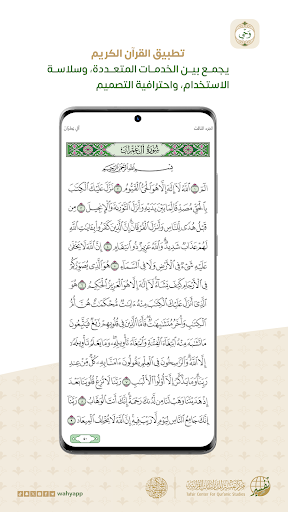 وَحْي
تطبيق القرآن الكريم
يجمـع بيـن الخدمـات المتعـددة، وسلاسـة
الاستخدام، واحترافية التصميم
الجزء الثالث
آل عمران
سُورَةُ آلِ عِمْرَانَ
بِسْمِ اللَّهِ الرَّحْمَٰنِ الرَّحِيمِ
الٓمٓ ١ اللَّهُ لَا إِلَٰهَ إِلَّا هُوَ الْحَيُّ الْقَيُّومُ ٢ نَزَّلَ عَلَيْكَ الْكِتَٰبَ
بِالْحَقِّ مُصَدِّقًا لِّمَا بَيْنَ يَدَيْهِ وَأَنزَلَ التَّوْرَىٰةَ وَالْإِنجِيلَ ٣ مِن قَبْلُ
هُدًى لِّلنَّاسِ وَأَنزَلَ الْفُرْقَانَ إِنَّ الَّذِينَ كَفَرُوا بِـَٔايَٰتِ اللَّهِ
لَهُمْ عَذَابٌ شَدِيدٌ وَاللَّهُ عَزِيزٌ ذُو انتِقَامٍ ٤ إِنَّ اللَّهَ لَا يَخْفَىٰ
عَلَيْهِ شَىْءٌ فِي الْأَرْضِ وَلَا فِي السَّمَاءِ ٥ هُوَ الَّذِي يُصَوِّرُكُمْ
فِي الْأَرْحَامِ كَيْفَ يَشَاءُ لَا إِلَٰهَ إِلَّا هُوَ الْعَزِيزُ الْحَكِيمُ ٦ هُوَ
الَّذِي أَنزَلَ عَلَيْكَ الْكِتَٰبَ مِنْهُ ءَايَٰتٌ مُّحْكَمَٰتٌ هُنَّ أُمُّ
الْكِتَٰبِ وَأُخَرُ مُتَشَٰبِهَٰتٌ فَأَمَّا الَّذِينَ فِي قُلُوبِهِمْ زَيْغٌ فَيَتَّبِعُونَ
مَا تَشَٰبَهَ مِنْهُ ابْتِغَاءَ الْفِتْنَةِ وَابْتِغَاءَ تَأْوِيلِهِ وَمَا يَعْلَمُ تَأْوِيلَهُ
إِلَّا اللَّهُ وَالرَّٰسِخُونَ فِي الْعِلْمِ يَقُولُونَ ءَامَنَّا بِهِ كُلٌّ مِّنْ عِندِ
رَبِّنَا وَمَا يَذَّكَّرُ إِلَّا أُولُوا الْأَلْبَٰبِ ٧ رَبَّنَا لَا تُزِغْ قُلُوبَنَا بَعْدَ
إِذْ هَدَيْتَنَا وَهَبْ لَنَا مِن لَّدُنكَ رَحْمَةً إِنَّكَ أَنتَ الْوَهَّابُ ٨ رَبَّنَا
إِنَّكَ جَامِعُ النَّاسِ لِيَوْمٍ لَّا رَيْبَ فِيهِ إِنَّ اللَّهَ لَا يُخْلِفُ الْمِيعَادَ ٩
٥٠
wahyapp
Tafsir Center for Qur'anic Studies